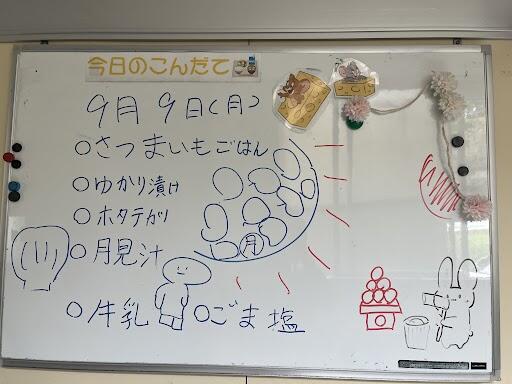 今日のこんだて
9月9日(月)
○さつまいもごはん
○ゆかり漬け
○ホタテガリ
○月見汁
○牛乳 ○ごま塩
月